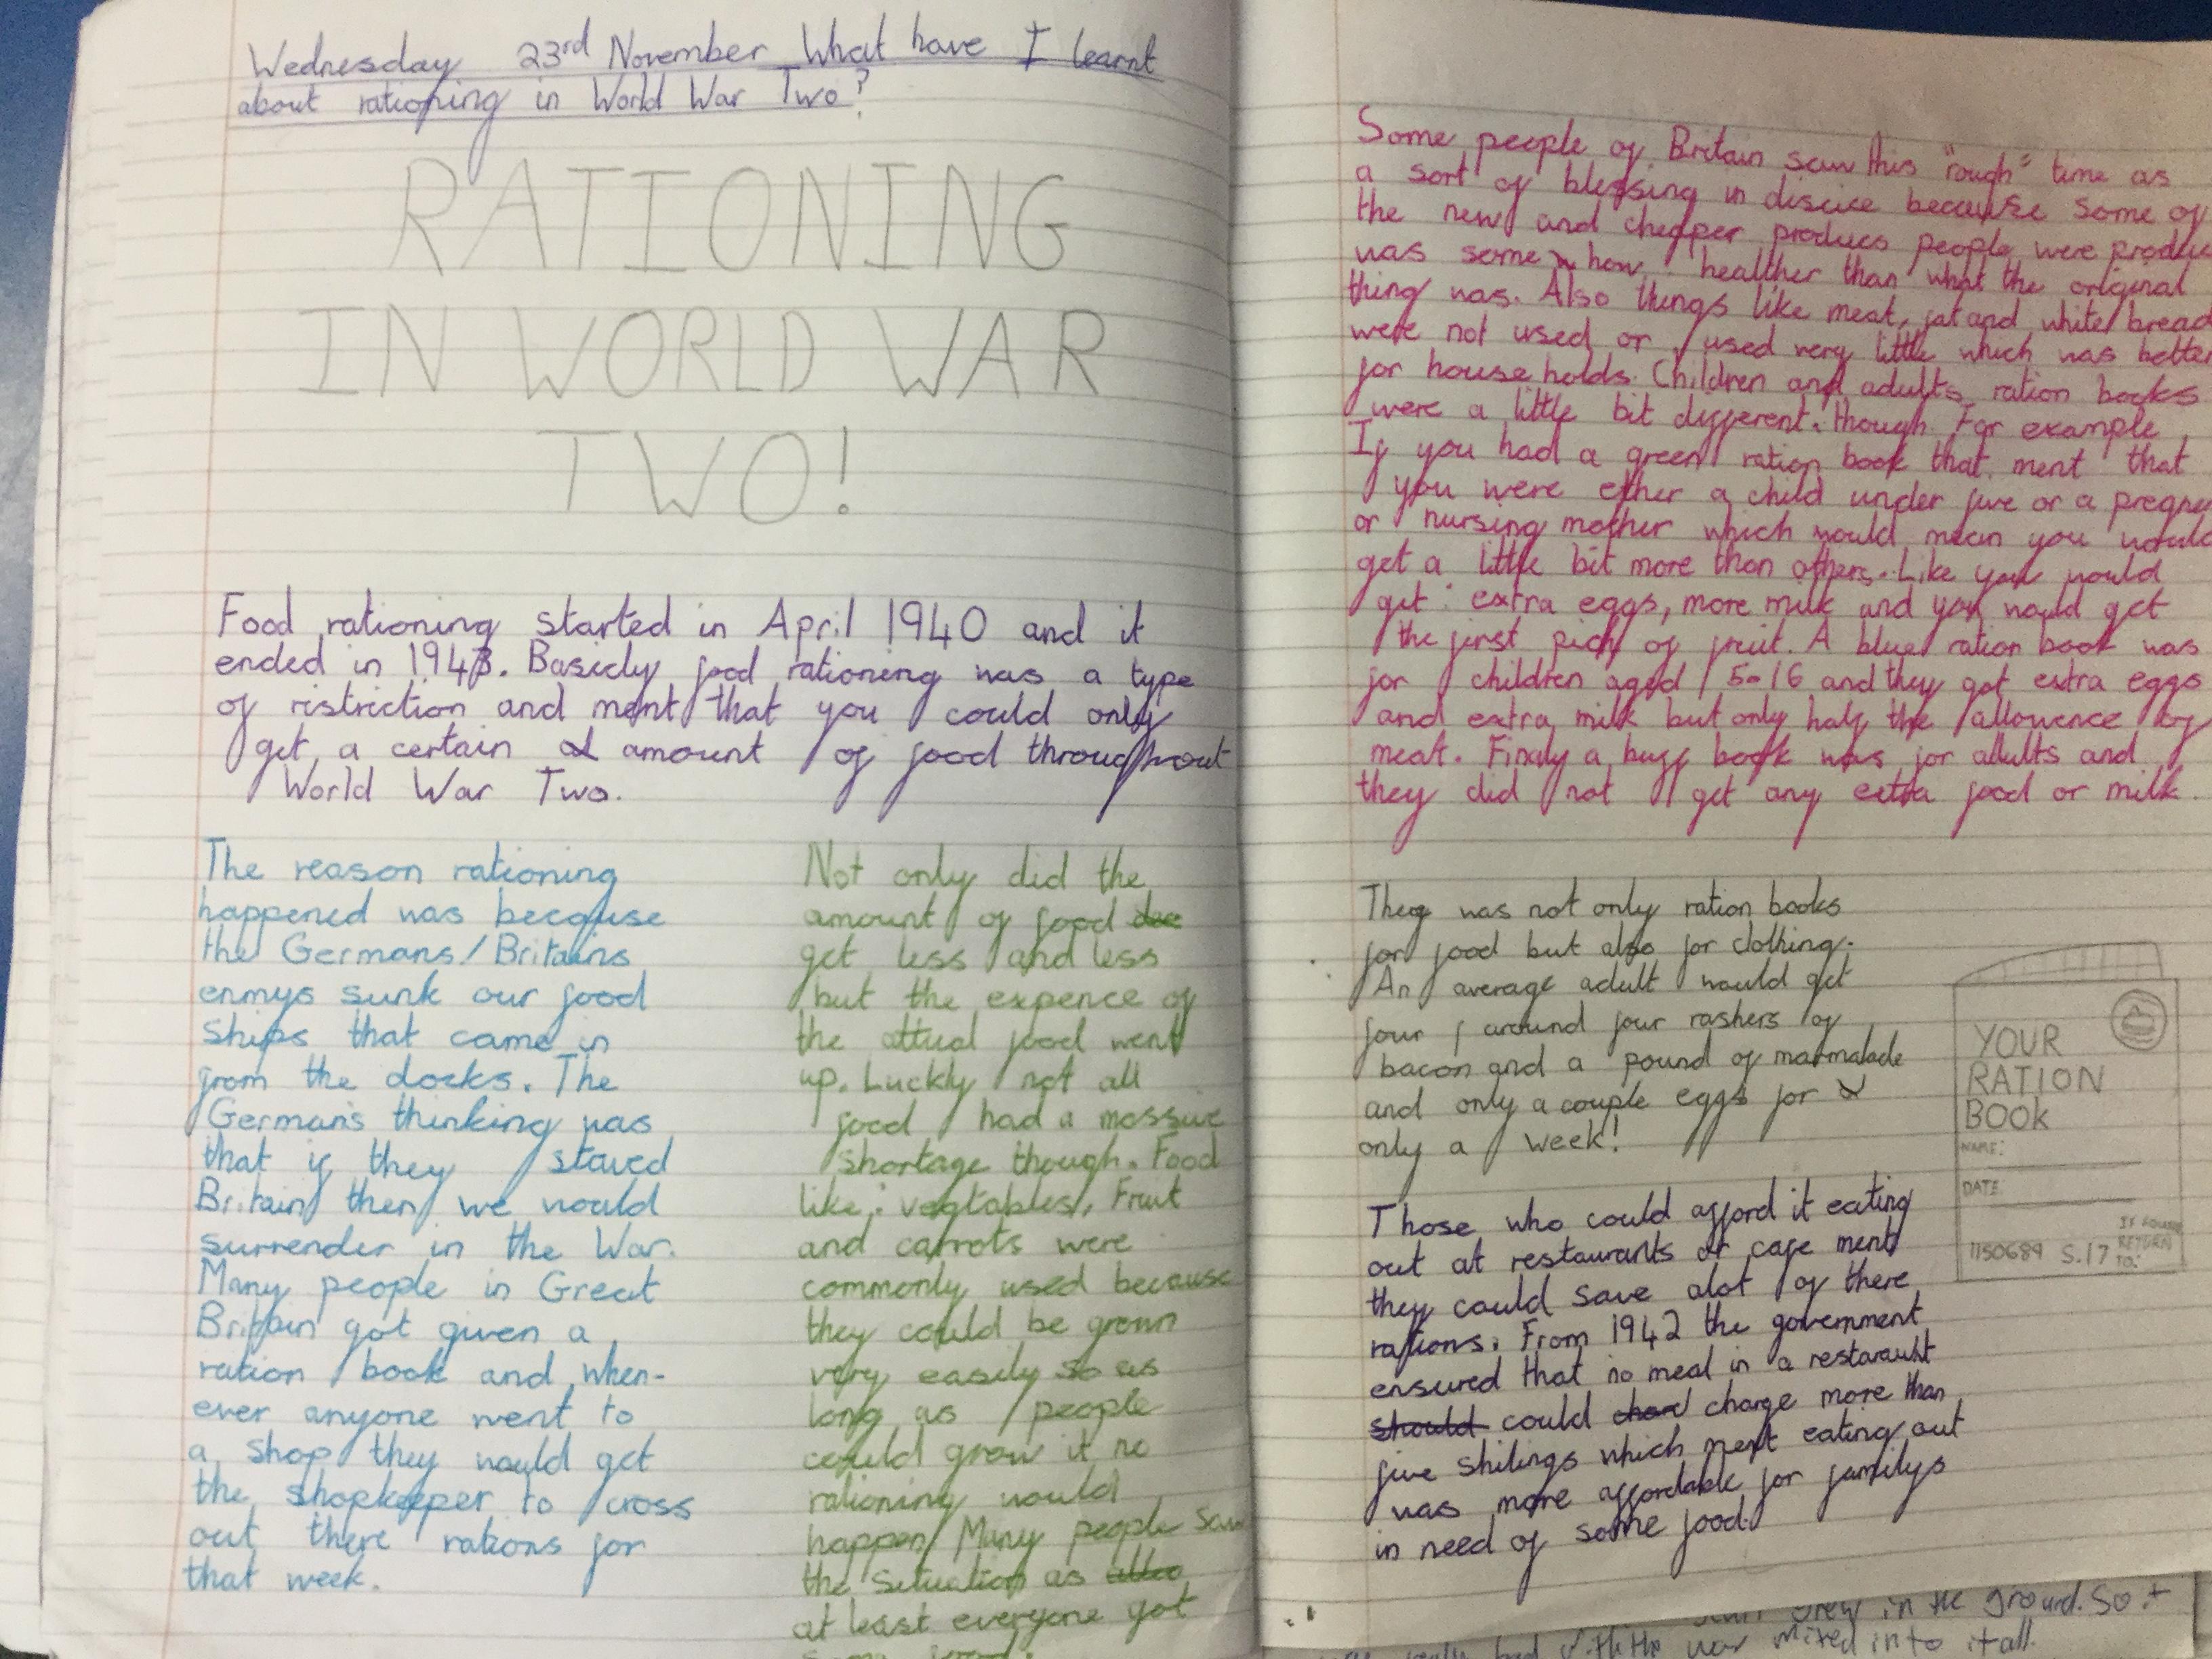 Wednesday 23rd November What have I learnt
about rationing in World War Two?
RATIONING
IN WORLD WAR
TWO!
Food rationing started in April 1940 and it
ended in . Basicly food rationing was a type
of ristriction and ment that you could only
get a certain amount of food throughout
World War Two.
The reason rationing
happened was because
the Germans/Britains
enmys sunk our food
ships that came in
from the docks. The
Germans thinking was
that if they staved
Britain then we would
surrender in the War.
Many people in Great
Britain got given a
ration book and when-
ever anyone went to
a shop they would get
the shopkeeper to cross
out there rations for
that week.
Not only did the
amount of food
get less and less
but the expence of
the attual food went
up. Luckly not all
food had a massive
shortage though. Food
like: vegtables, Fruit
and carrots were
commonly used because
they could be grown
very easily so as
long as people
could grow it no
rationing would
happen. Many people saw
the situation as
at least everyone got
some food.
Some people of Britain saw this "rough" time as
a sort of blessing in discice because some of
the new and cheaper produces people were produc
was some how healther than what the original
thing was. Also things like meat, fat and white bread
were not used or used very little which was better
for households. Children and adults ration books
were a little bit different though. For example
If you had a green ration book that ment that
you were either a child under five or a pregna
or nursing mother which would mean you would
get a little bit more than others. Like you would
get: extra eggs, more milk and you would get
the first pick of fruit. A blue ration book was
for children aged 5-16 and they got extra eggs
and extra milk but only half the allowence of
meat. Finaly a buff book was for adults and
they did not get any extra food or milk.
There was not only ration books
for food but also for clothing.
An average adult would get
four, around four rashers of
bacon and a pound of marmalade
and only a couple eggs for
only a week!
YOUR
RATION
BOOK
NAME:
DATE
IF FOUND
RETURN
TO:
1150689 S.17
Those who could afford it eating
out at restaurants or cafe ment
they could save alot of there
rations. From 1942 the government
ensured that no meal in a restaraunt
should could charge more than
five shilings which ment eating out
was more affordable for familys
in need of some food.
grew in the ground. So t
bad with the war mixed into it all.